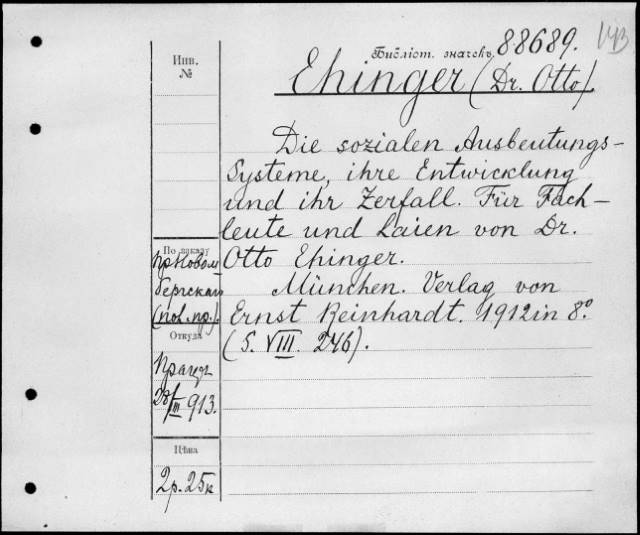 Библіот. значекъ 88689.
Инв.
№
Ehinger (Dr. Otto).
Die sozialen Ausbeutungs-
Systeme, ihre Entwicklung
und ihr Zerfall. Für Fach-
leute und Laien von Dr.
Otto Ehinger.
München. Verlag von
Ernst Reinhardt. 1912 in 8º
(S. VIII. 246).
По заказу
пр. Новом-
бергскаго
(пол. пр.).
Откуда
28/III 913.
Цѣна
2 р. 25 к